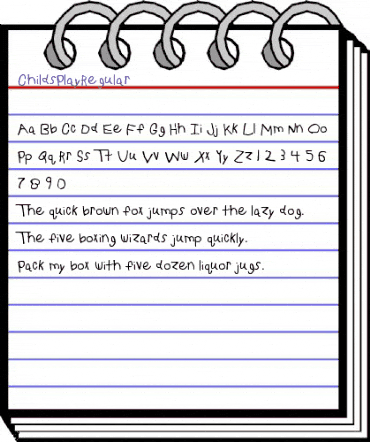 ChildsPlayRegular
Aa Bb Cc Dd Ee Ff Gg Hh Ii Jj Kk Ll Mm Nn Oo
Pp Qq Rr Ss Tt Uu Vv Ww Xx Yy Zz 1 2 3 4 5 6
7 8 9 0
The quick brown fox jumps over the lazy dog.
The five boxing wizards jump quickly.
Pack my box with five dozen liquor jugs.